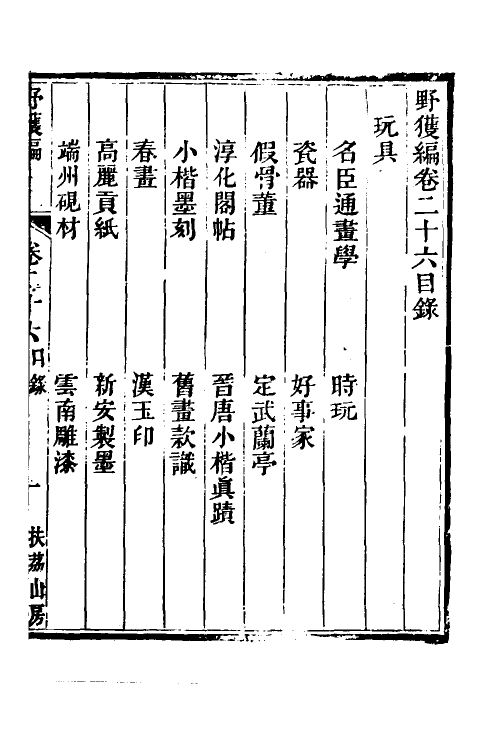 野獲編卷二十六目錄
玩具
名臣通畫學　時玩
瓷器　好事家
假骨董　定武蘭亭
淳化閣帖　晉唐小楷眞蹟
小楷墨刻　舊畫款識
春畫　漢玉印
高麗貢紙　新安製墨
端州硯材　雲南雕漆
野獲編　卷二十六目錄　一　扶荔山房